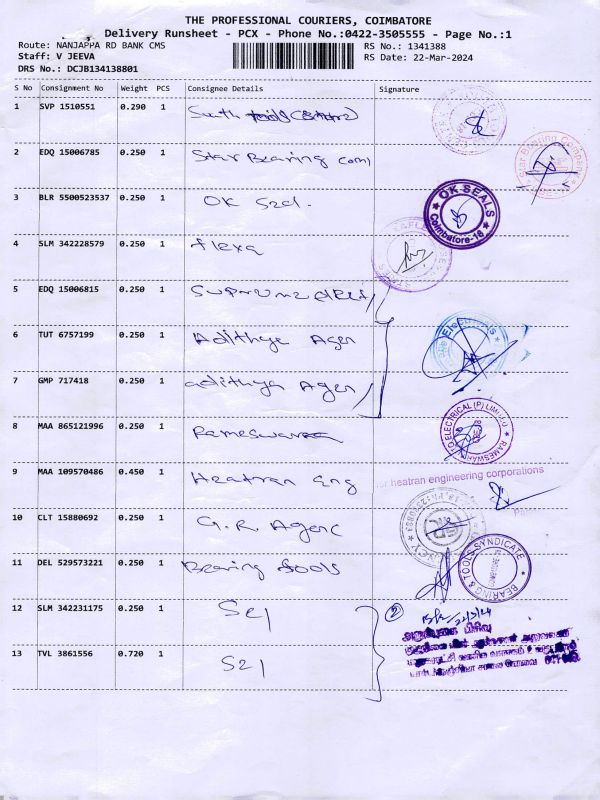 THE PROFESSIONAL COURIERS, COIMBATORE
Delivery Runsheet - PCX - Phone No.:0422-3505555 - Page No.:1
Route: NANJAPPA RD BANK CMS RS No.: 1341388
Staff: V JEEVA RS Date: 22-Mar-2024
DRS No.: DCJB134138801
S No Consignment No Weight PCS Consignee Details Signature
1 SVP 1510551 0.290 1 South
2 EDQ 15006785 0.250 1 Star Bearing Com
Star Bearing Company
3 BLR 5500523537 0.250 1 OK Seal.
OK SEALS
Coimbatore-18
4 SLM 342228579 0.250 1 flexa
5 EDQ 15006815 0.250 1
6 TUT 6757199 0.250 1 Adithya Agen
Electricals
7 GMP 717418 0.250 1 adithya Agen
8 MAA 865121996 0.250 1 Rameswara
ELECTRICAL (P) LIMITED
9 MAA 109570486 0.450 1 Heatran Eng
for heatran engineering corporations
10 CLT 15880692 0.250 1 G.R. Agenc
11 DEL 529573221 0.250 1 Bearing Tools
BEARING & TOOLS SYNDICATE
12 SLM 342231175 0.250 1 SE1
2
22/3/24
13 TVL 3861556 0.720 1 SE1